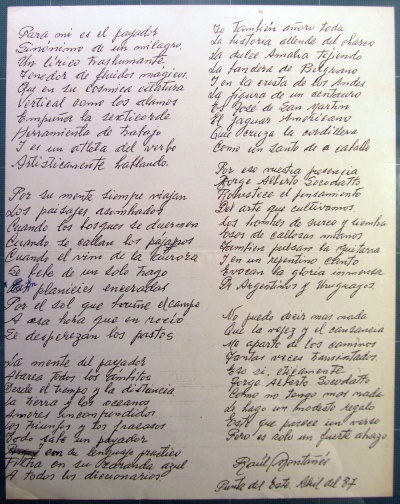 Para mi es el payador
Sinónimo de un milagro.
Un lírico trashumante,
Tenedor de fluidos mágicos.
Que en su cósmica estatura
Vertical como los álamos
Empuña la sexticorde
Herramienta de trabajo
I es un atleta del verbo
Artísticamente hablando.
Por su mente siempre viajan
Los paisajes asombrados
Cuando los bosques se duermen
Cuando se callan los pájaros
Cuando el vino de la aurora
Se bebe de un solo trago
Las planicies enceradas
Por el sol que bruñe el campo
A esa hora que en rocío
Se desperezan los pastos
La mente del payador
Abarca todos los ámbitos
Desde el tiempo y la distancia
La tierra y los oceanos
Amores incomprendidos
Los triunfos y los fracasos
Todo sabe un payador
en su lenguaje práctico
Filtra en su zaranda azul
A todos los diccionarios
Yo también añoro toda
La historia allende del charco
La dulce Amalia tejiendo
La bandera de Belgrano
I en la cresta de los Andes
La figura de un centauro
Es José de San Martín
El jaguar Americano
Que cruza la cordillera
Como un santo de a caballo
Por eso vuestra presencia
Jorge Alberto Socodatto
Robustece el pensamiento
Del arte que cultivamos
Los hombres de surco y siembra
Esos de callosas manos
También pulsan la guitarra
I en un repentino canto
Evocan la gloria inmensa
De Argentinos y Uruguayos.
No puedo decir mas nada
Que la vejez y el cansancio
Me aparta de los caminos
Tantas veces transitados.
Eso si, etijamente
Jorge Alberto Socodatto
Como no tengo mas nada
Le hago un modesto regalo
Este que parece un verso
Pero es solo un fuerte abrazo
Raúl Montañés
Punta del Este Abril del 87